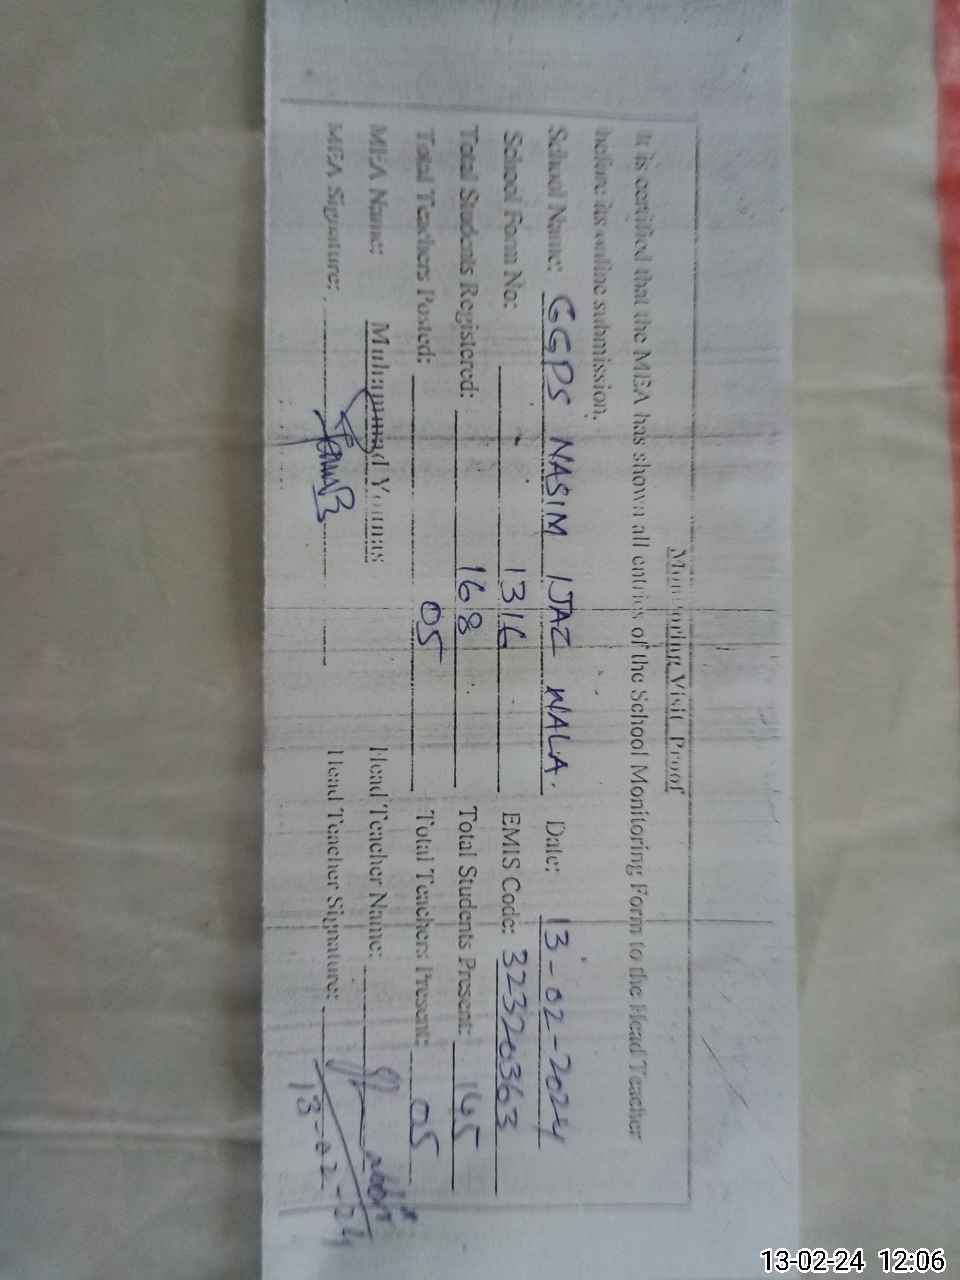 Monitoring Visit Proof
It is certified that the MEA has shown all entries of the School Monitoring Form to the Head Teacher
before its online submission.
School Name: GGPS NASIM IJAZ WALA. Date: 13-02-2024
School Form No: 1316 EMIS Code: 32320363
Total Students Registered: 168 Total Students Present: 145
Total Teachers Posted: 05 Total Teachers Present: 05
MEA Name: Muhammad Younas Head Teacher Name:
MEA Signature: Head Teacher Signature:
13-02-24
13-02-24 12:06